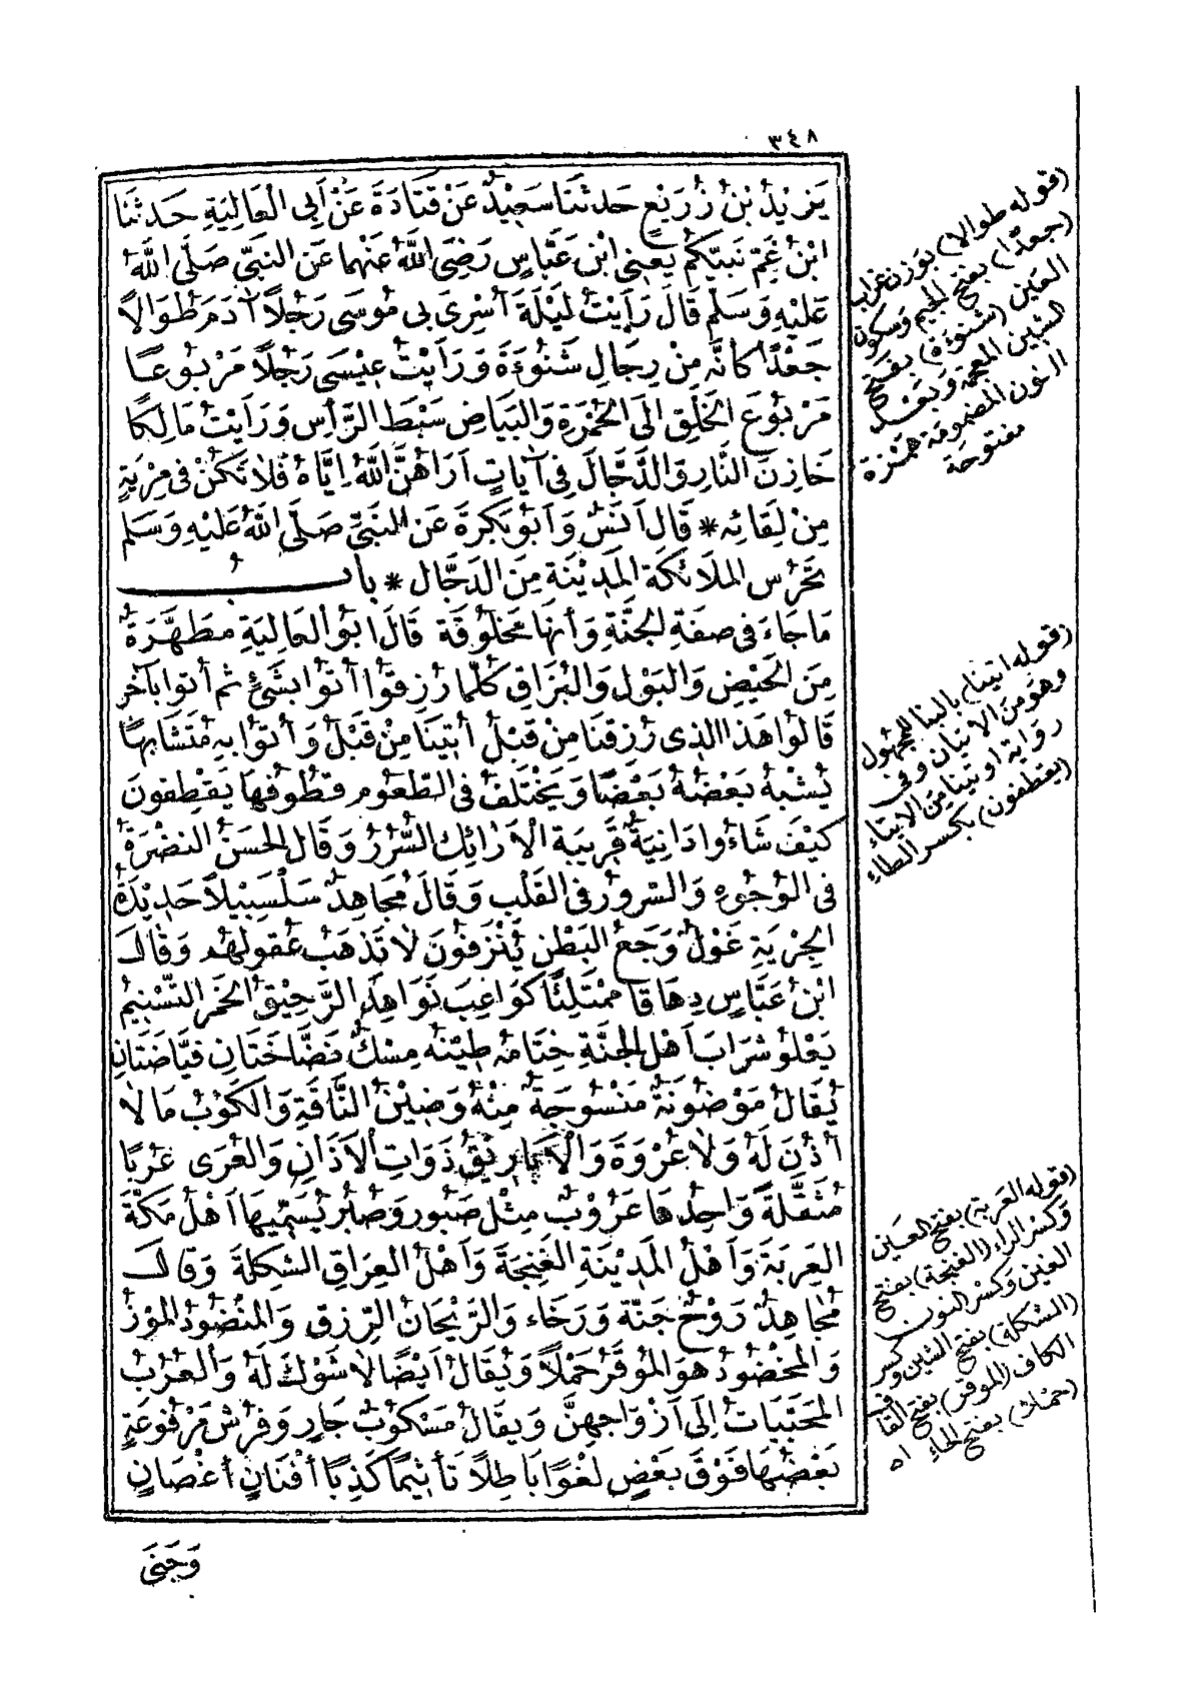 ٣٤٨
يَزِيْدُ بْنُ زُرَيْعٍ حَدَّثَنَا سَعِيْدٌ عَنْ قَتَادَةَ عَنْ أَبِى الْعَالِيَةِ حَدَّثَنَا
ابْنُ عَمِّ نَبِيِّكُمْ يَعْنِى ابْنَ عَبَّاسٍ رَضِىَ اللّٰهُ عَنْهُمَا عَنِ النَّبِىِّ صَلَّى اللّٰهُ
عَلَيْهِ وَسَلَّمَ قَالَ رَأَيْتُ لَيْلَةَ أُسْرِىَ بِى مُوسَى رَجُلاً آدَمَ طُوَالاً
جَعْدًا كَاَنَّهُ مِنْ رِجَالِ شَنُوءَةَ وَرَاَيْتُ عِيْسَى رَجُلاً مَرْبُوعًا
مَرْبُوعَ الْخَلْقِ اِلَى الْحُمْرَةِ وَالْبَيَاضِ سَبْطَ الرَّأْسِ وَرَاَيْتُ مَالِكًا
خَازِنَ النَّارِ وَالدَّجَّالَ فِى آيَاتٍ اَرَاهُنَّ اللّٰهُ اِيَّاهُ فَلاَ تَكُنْ فِى مِرْيَةٍ
مِنْ لِقَائِهِ * قَالَ اَنَسٌ وَاَبُو بَكْرَةَ عَنِ النَّبِىِّ صَلَّى اللّٰهُ عَلَيْهِ وَسَلَّمَ
تَحْرُسُ الْمَلاَئِكَةُ الْمَدِيْنَةَ مِنَ الدَّجَّالِ * بابُ
مَا جَاءَ فِى صِفَةِ الْجَنَّةِ وَأَنَّهَا مَخْلُوقَةٌ قَالَ اَبُو الْعَالِيَةِ مُطَهَّرَةٌ
مِنَ الْحَيْضِ وَالْبَوْلِ وَالْبُزَاقِ كُلَّمَا رُزِقُوا أُتُوا بِشَىْءٍ ثُمَّ أُتُوا بِآخَرَ
قَالُوا هَذَا الَّذِى رُزِقْنَا مِنْ قَبْلُ أُتِيْنَا مِنْ قَبْلُ وَأُتُوا بِهِ مُتَشَابِهًا
يُشْبِهُ بَعْضُهُ بَعْضًا وَيَخْتَلِفُ فِى الطُّعُومِ قُطُوفُهَا يَقْطِفُونَ
كَيْفَ شَاءُوا دَانِيَةٌ قَرِيبَةٌ الْاَرَائِكُ السُّرُرُ وَقَالَ الْحَسَنُ النَّضْرَةُ
فِى الْوُجُوهِ وَالسُّرُورُ فِى الْقَلْبِ وَقَالَ مُجَاهِدٌ سَلْسَبِيْلاً حَدِيْدَةُ
الْجِرْيَةِ غَوْلٌ وَجَعُ الْبَطْنِ يُنْزَفُونَ لاَ تَذْهَبُ عُقُولُهُمْ وَقَالَ
ابْنُ عَبَّاسٍ دِهَاقًا مُمْتَلِئًا كَوَاعِبَ نَوَاهِدَ الرَّحِيْقُ الْخَمْرُ التَّسْنِيْمُ
يَعْلُو شَرَابَ اَهْلِ الْجَنَّةِ خِتَامُهُ طِيْنُهُ مِسْكٌ نَضَّاخَتَانِ فَيَّاضَتَانِ
يُقَالُ مَوْضُونَةٌ مَنْسُوجَةٌ مِنْهُ وَضِيْنُ النَّاقَةِ وَالْكُوْبُ مَالاَ
أُذُنَ لَهُ وَلاَ عُرْوَةَ وَالْاَبَارِيْقُ ذَوَاتُ الْآذَانِ وَالْعُرَى عُرُبًا
مُثَقَّلَةً وَاحِدُهَا عَرُوْبٌ مِثْلُ صَبُورٍ وَصُبُرٍ يُسَمِّيهَا اَهْلُ مَكَّةَ
الْعَرِبَةَ وَاَهْلُ الْمَدِيْنَةِ الْغَنِجَةَ وَاَهْلُ الْعِرَاقِ الشَّكِلَةَ وَقَالَ
مُجَاهِدٌ رَوْحٌ جَنَّةٌ وَرَخَاءٌ وَالرَّيْحَانُ الرِّزْقُ وَالْمَنْضُودُ الْمَوْزُ
وَالْمَخْضُودُ هُوَ الْمُوْقَرُ حَمْلاً وَيُقَالُ اَيْضًا لاَ شَوْكَ لَهُ وَالْعُرُبُ
الْمُحَبَّبَاتُ اِلَى اَزْوَاجِهِنَّ وَيُقَالُ مَسْكُوبٌ جَارٍ وَفُرُشٍ مَرْفُوعَةٍ
بَعْضُهَا فَوْقَ بَعْضٍ لَغْوًا بَاطِلًا تَأْثِيْمًا كَذِبًا أَفْنَانٍ أَغْصَانٍ
وَجَنَى
(قوله طوالا) بوزن غراب
(جعدا) بفتح الجيم وسكون
العين (شنوءة) بفتح
الشين المعجمة وبعد
النون المضمومة همزة
مفتوحة
(قوله اتينا) بالبنا للمجهول
وهو من الاتيان وفى
رواية اوتينا من الايتاء
(يقطفون) بكسر الطاء
(قوله العربة) بفتح العين
وكسر الراء (الغنجة) بفتح
الغين وكسر النون
(الشكلة) بفتح الشين وكسر
الكاف (الموقر) بفتح القاف
(حملا) بفتح الحاء اه